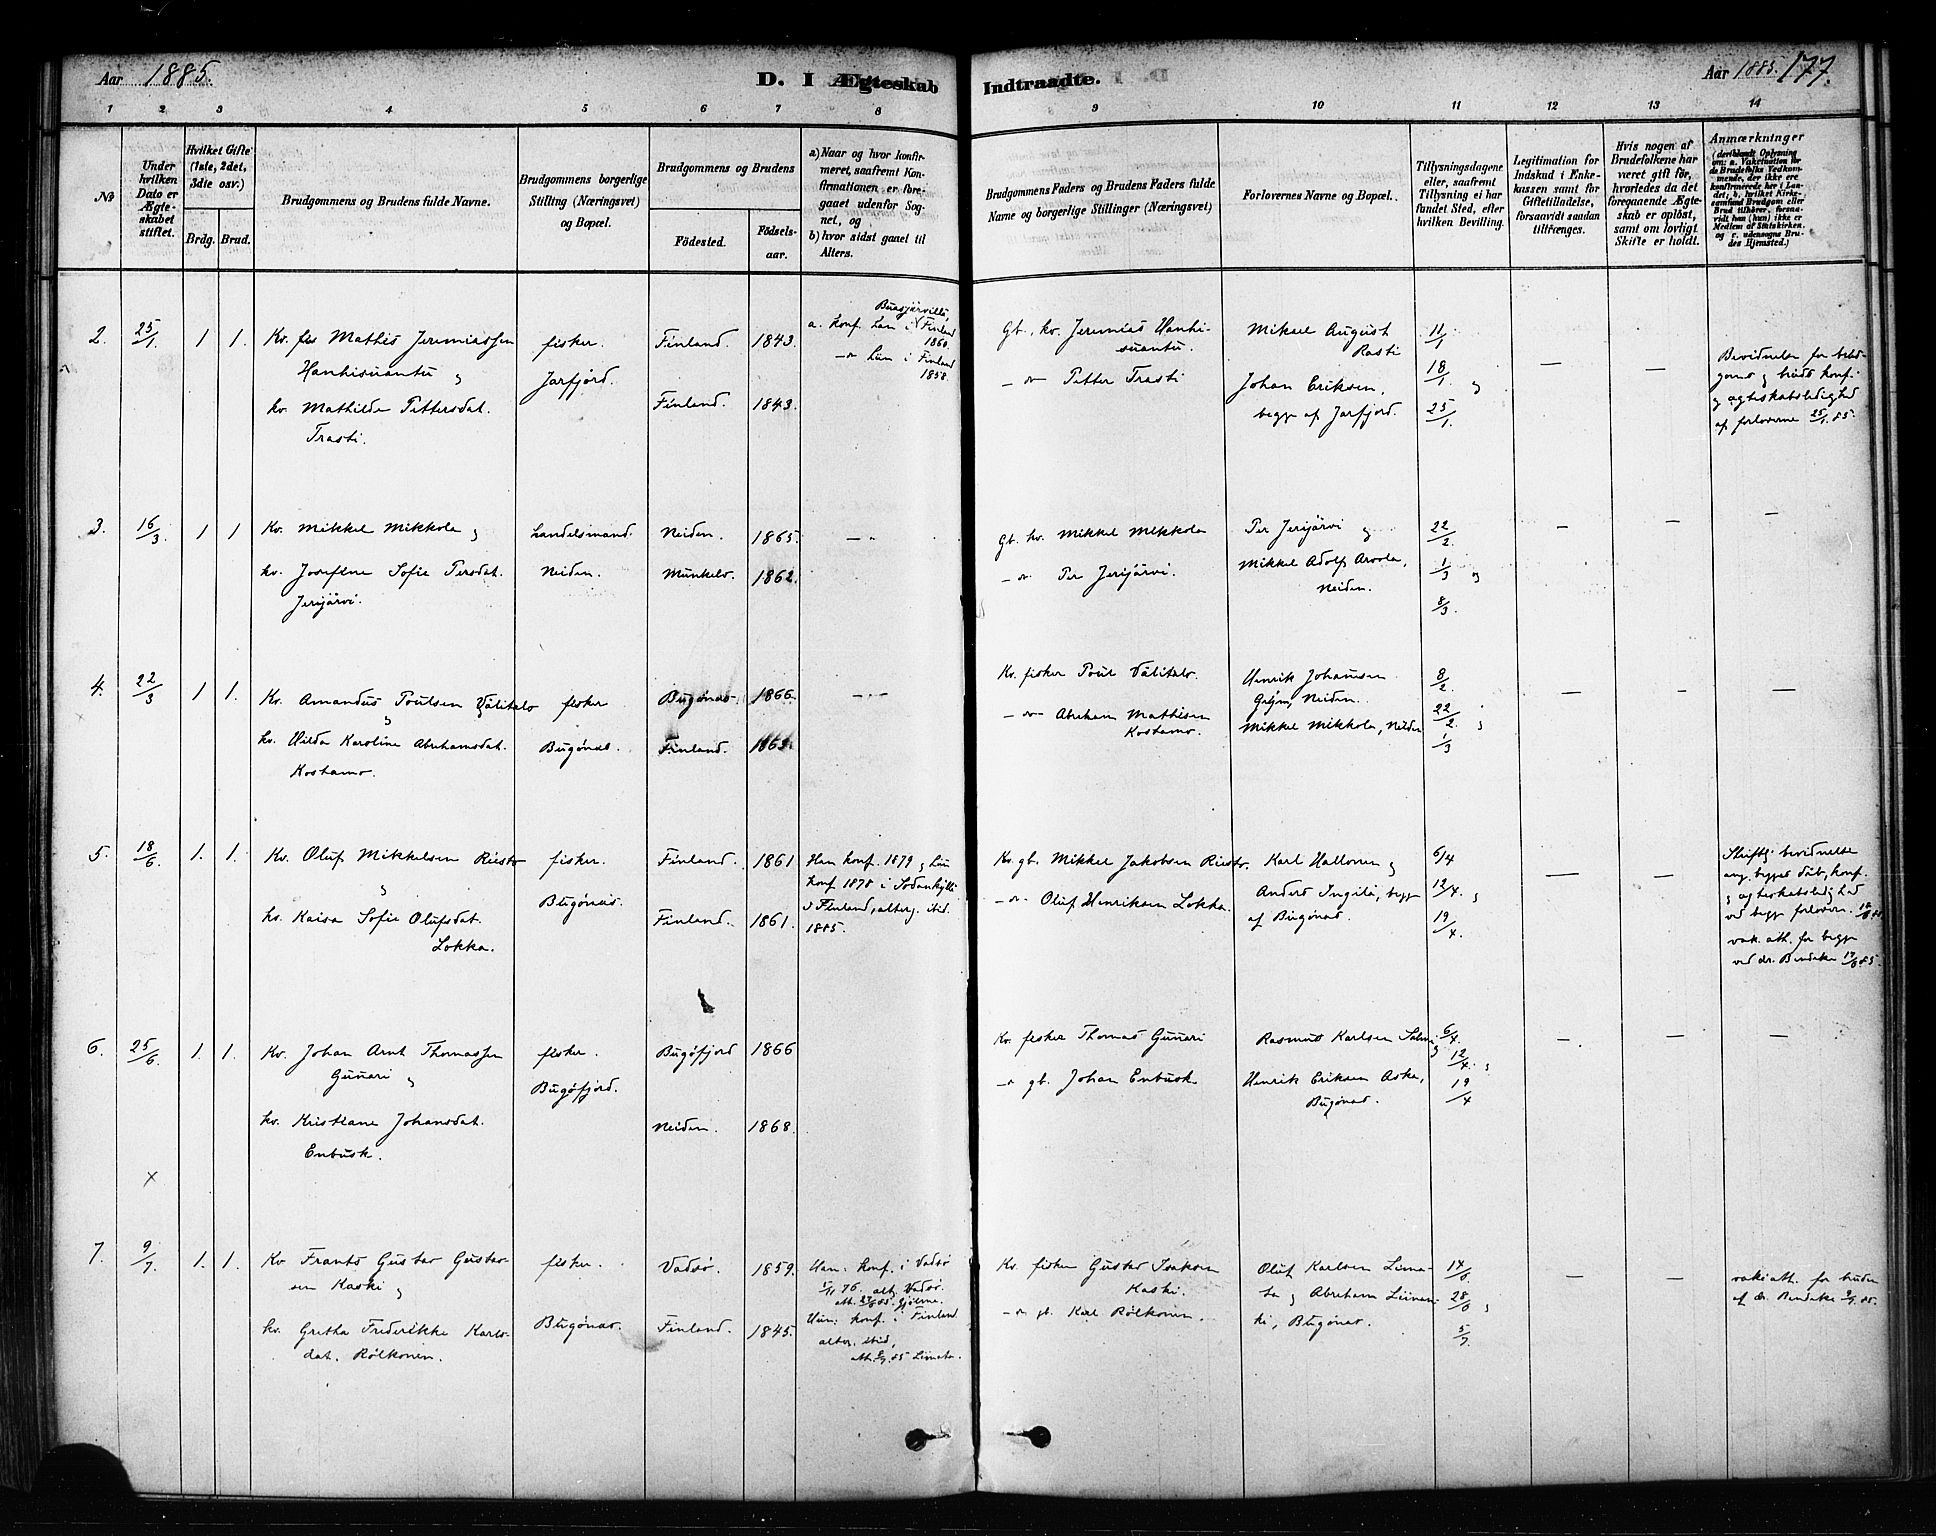 Aar 1885.
D. I Ægteskab Indtraadte.
Aar 1885.
177.
1 2 3 4 5 6 7 8 9 10 11 12 13 14
No
Under hvilken Dato er Ægteskabet stiftet.
Hvilket Gifte (1ste, 2det, 3die osv.)
Brdg. Brud.
Brudgommens og Brudens fulde Navne.
Brudgommens borgerlige Stilling (Næringsvei) og Bopæl.
Brudgommens og Brudens
Födested.
Födselsaar.
a) Naar og hvor konfirmeret, saafremt Konfirmationen er foregaaet udenfor Sognet, og
b) hvor sidst gaaet til Alters.
Brudgommens Faders og Brudens Faders fulde Navne og borgerlige Stillinger (Næringsvei)
Forlovernes Navne og Bopæl.
Tillysningsdagene eller, saafremt Tillysning ei har fundet Sted, efter hvilken Bevilling.
Legitimation for Indskud i Enkekassen samt for Giftetilladelse, forsaavidt saadan tiltrænges.
Hvis nogen af Brudefolkene har været gift för, hvorledes da det foregaaende Ægteskab er oplöst, samt om lovligt Skifte er holdt.
Anmærkninger
(deriblandt Oplysning om: a. Vaksination for de Brudefolks Vedkommende, der ikke ere konfirmerede her i Landet; b. hvilket Kirkesamfund Brudgom eller Brud tilhörer, forsaavidt han (hun) ikke er Medlem af Statskirken, og c. udensogns Brudes Hjemsted.)
2. 25/1 1 1 Kv. fes Mathis Jeremiassen
Hanhisuantu og
kv. Mathilde Pettersdat.
Trasti.
fisker.
Jarfjord.
Finland. 1843.
Finland. 1843.
a. Konf. han i Finland
1860.
i Finland
1858.
Gb. kv. Jeremias Hanhisuantu.
Petter Trasti
Mikael August
Rasti
Johan Eriksen,
begge af Jarfjord.
11/1
18/1 og
25/1.
—
—
Bevidnelse for brudgoms og bruds konf.
og ægteskabsledighed
af forloverne 25/1.85.
3. 16/3 1 1 Kv. Mikkel Mikkola og
kv. Josefine Sofie Persdat.
Jerijärvi.
Handelsmand.
Neiden.
Neiden. 1865.
Munkelv. 1862.
Gb. kv. Mikkel Mikkola
Per Jerijärvi.
Per Jerijärvi og
Mikkel Adolf Arvola,
Neiden.
22/2.
1/3 og
8/3.
—
—
—
4. 22/3 1 1. Kv. Amandus Poulsen Välitalo
og
kv. Hilda Karoline Abrahamsdat.
Kostamo.
fisker
Bugönæs.
Bugönæs. 1866.
Finland.
Kv. fisker Poul Välitalo.
Abraham Mathisen
Kostamo.
Henrik Johansen
Neiden.
Mikkel Mikkola, Neiden
8/2.
22/2. og
1/3
—
—
—
5. 18/6 1. 1. Kv. Oluf Mikkelsen Riesto
og
kv. Kaisa Sofie Olufsdat.
Lokka.
fisker.
Bugönæs.
Finland. 1861
Finland. 1861.
Han konf. 1879 og hun
konf. 1878 i Sodankylä
i Finland, alterg. ibid.
1885.
Kv. gb. Mikkel Jakobsen Riesto.
Oluf Henriksen Lokka.
Karl Hallonen og
Anders Ingilä, begge
af Bugönæs.
6/4
12/4. og
19/4.
—
—
Skriftlig bevidnelse
ang. begges dåb, konf.
og ægteskabsledighed
ved begge forlovere.
vak. att. for begge
ved dr. Bendeke 17/6 85.
6. 25/6. 1. 1. Kv. Johan Arnt Thomassen
Gunari og
kv. Kristiane Johansdat.
Enbusk.
fisker.
Bugöfjord.
Bugöfjord 1866
Neiden. 1868.
Kv. fisker Thomas Gunari
gb. Johan Enbusk
Rasmus Karlsen Salmi
og
Henrik Eriksen Aska,
Bugönæs.
6/4.
12/4. og
19/4
—
—
—
x
7. 9/7 1. 1. Kv Frants Gustav Gustavsen Kaski og
kv. Gretha Frederikke Karlsdat. Rölkonen.
fisker.
Bugönæs.
Vadsö. 1859.
Finland. 1845.
Han: konf. i Vadsö
Hun: konf. i Finland
alter. ibid,
Kv. fisker Gustav Isaksen
Kaski.
gb. Karl Rölkonen.
Oluf Karlsen Liimata og Abraham Liinanki, Bugönæs.
14/6
28/6 og
5/7
—
—
vaks. att. for bruden
af dr. Bendeke 2/7.85.